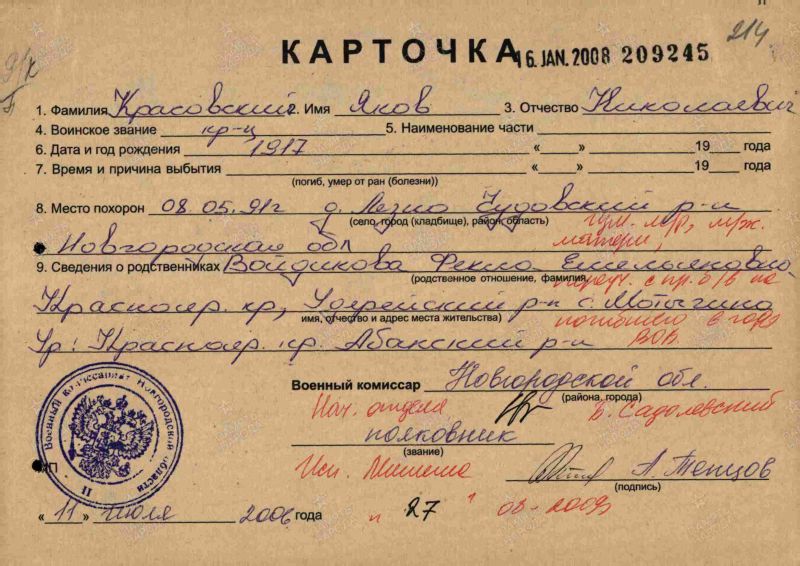 214
КАРТОЧКА 16. JAN. 2008 209245
1. Фамилия Красовский 2. Имя Яков 3. Отчество Николаевич
4. Воинское звание кр-ц 5. Наименование части
6. Дата и год рождения 1917 « » 19 года
7. Время и причина выбытия « » 19 года
(погиб, умер от ран (болезни))
8. Место похорон 08.05.91г д. Лезно Чудовский р-н
(село, город (кладбище), район, область)
Новгородская обл
матери,
9. Сведения о родственниках Войдикова Фекла Емельяновна
(родственное отношение, фамилия,
Краснояр. кр, Удерейский р-н с. Мотыгино
имя, отчество и адрес места жительства)
погибшего в годы
Ур: Краснояр. кр. Абанский р-н
ВОВ
Военный комиссар Новгородской обл.
(района, города)
Нач. отдела В. Садолевский
полковник
(звание)
Исп. А. Тепцов
(подпись)
Военный комиссариат Новгородской области
МП
« 11 » июля 2006 года
" 27 " 08-2009г